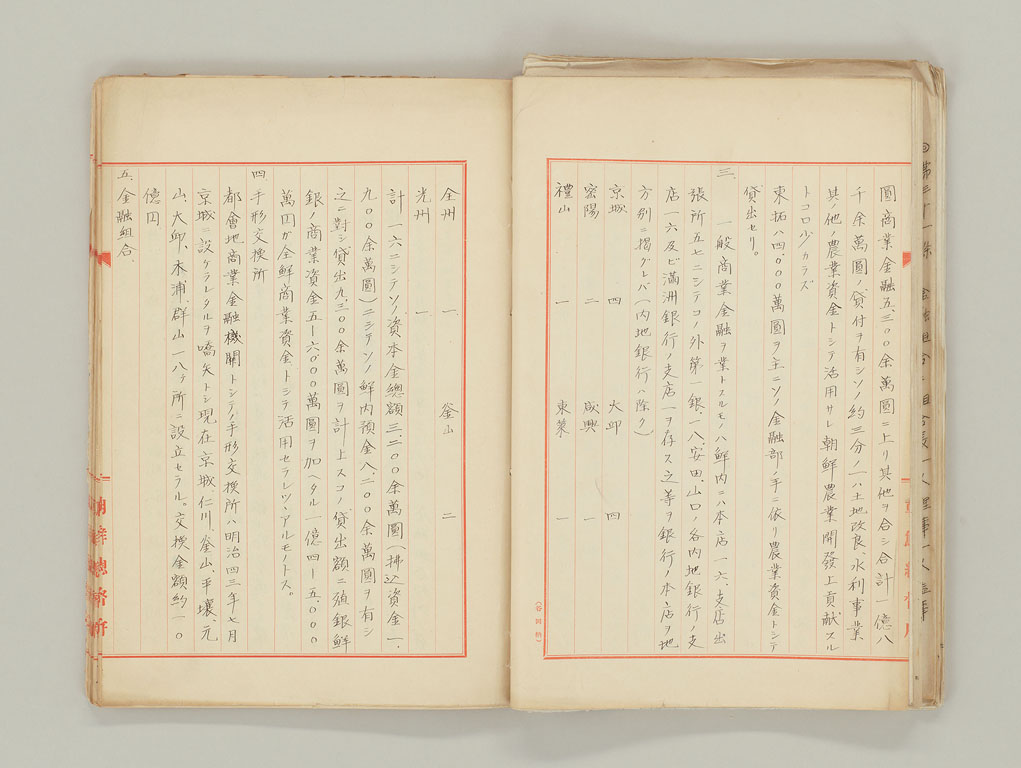 圓商業金融五、三〇〇余萬圓ニ上リ其他ヲ合シ合計一億八
千余萬圓ノ貸付ヲ有シソノ約三分ノ一ハ土地改良、水利事業
其ノ他ノ農業資金トシテ活用サレ朝鮮農業開發上貢献スル
トコロ少カラズ
東拓ハ四、〇〇〇萬圓ヲ主ニソノ金融部ノ手ニ依リ農業資金トシテ
貸出セリ。
三、
一般商業金融ヲ業トスルモノハ鮮内ニハ本店一六、支店出
張所五七ニシテコノ外第一銀、一八、安田、山口ノ各内地銀行ノ支
店一六及ビ滿洲銀行ノ支店一ヲ存ス之等ヲ銀行ノ本店ヲ地
方別ニ掲グレバ(内地銀行ハ除ク)
京城 四 大邱 四
密陽 二 咸興 一
禮山 一 東萊 一
(谷岡納)
全州 一 釜山 二
光州 一
計一六ニシテソノ資本金總額三、二〇〇余萬圓(拂込資金一、
九〇〇余萬圓)ニシテソノ鮮内預金八、二〇〇余萬圓ヲ有シ
之ニ對シ貸出九、三〇〇余萬圓ヲ計上スコノ貸出額ニ殖銀鮮
銀ノ商業資金五―六、〇〇〇萬圓ヲ加ヘタル一億四―五、〇〇〇
萬円が全鮮商業資金トシテ活用セラレツヽアルモノトス。
四、手形交換所
都會地商業金融機關トシテノ手形交換所ハ明治四三年七月
京城ニ設ケラレタルヲ嚆矢トシ現在京城、仁川、釜山、平壤、元
山、大邱、木浦、群山ノ八ヶ所ニ設立セラル。交換金額約一〇
億円
五、金融組合、
朝鮮總督府